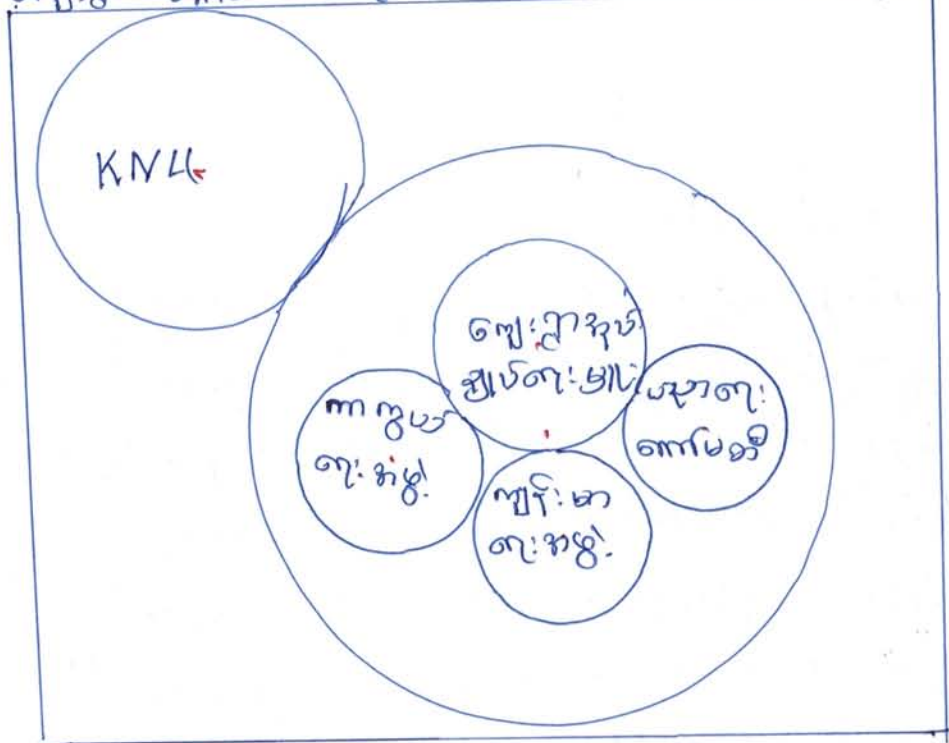 KNU
ကျေးရွာအုပ်
ချုပ်ရေးမှူး
ကာကွယ်
ရေးအဖွဲ့
ပညာရေး
ကော်မတီ
ကျန်းမာ
ရေးအဖွဲ့